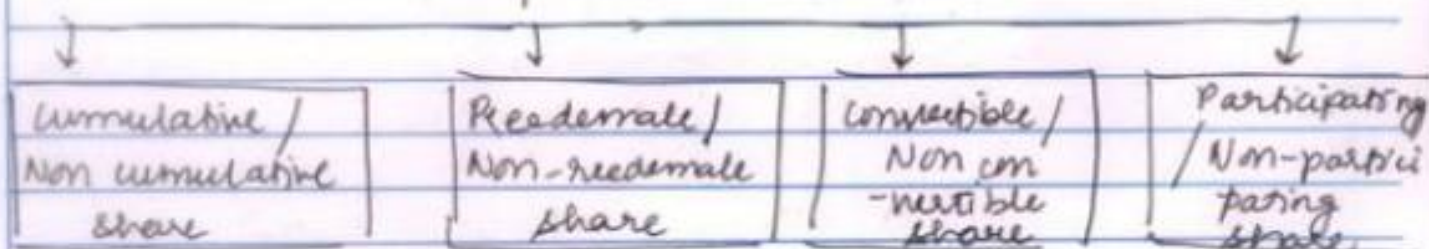 Cumulative /
Non cumulative
share
Reedemale /
Non-reedemale
share
Convertible /
Non con
-vertible
share
Participating
/ Non-partici
pating
share